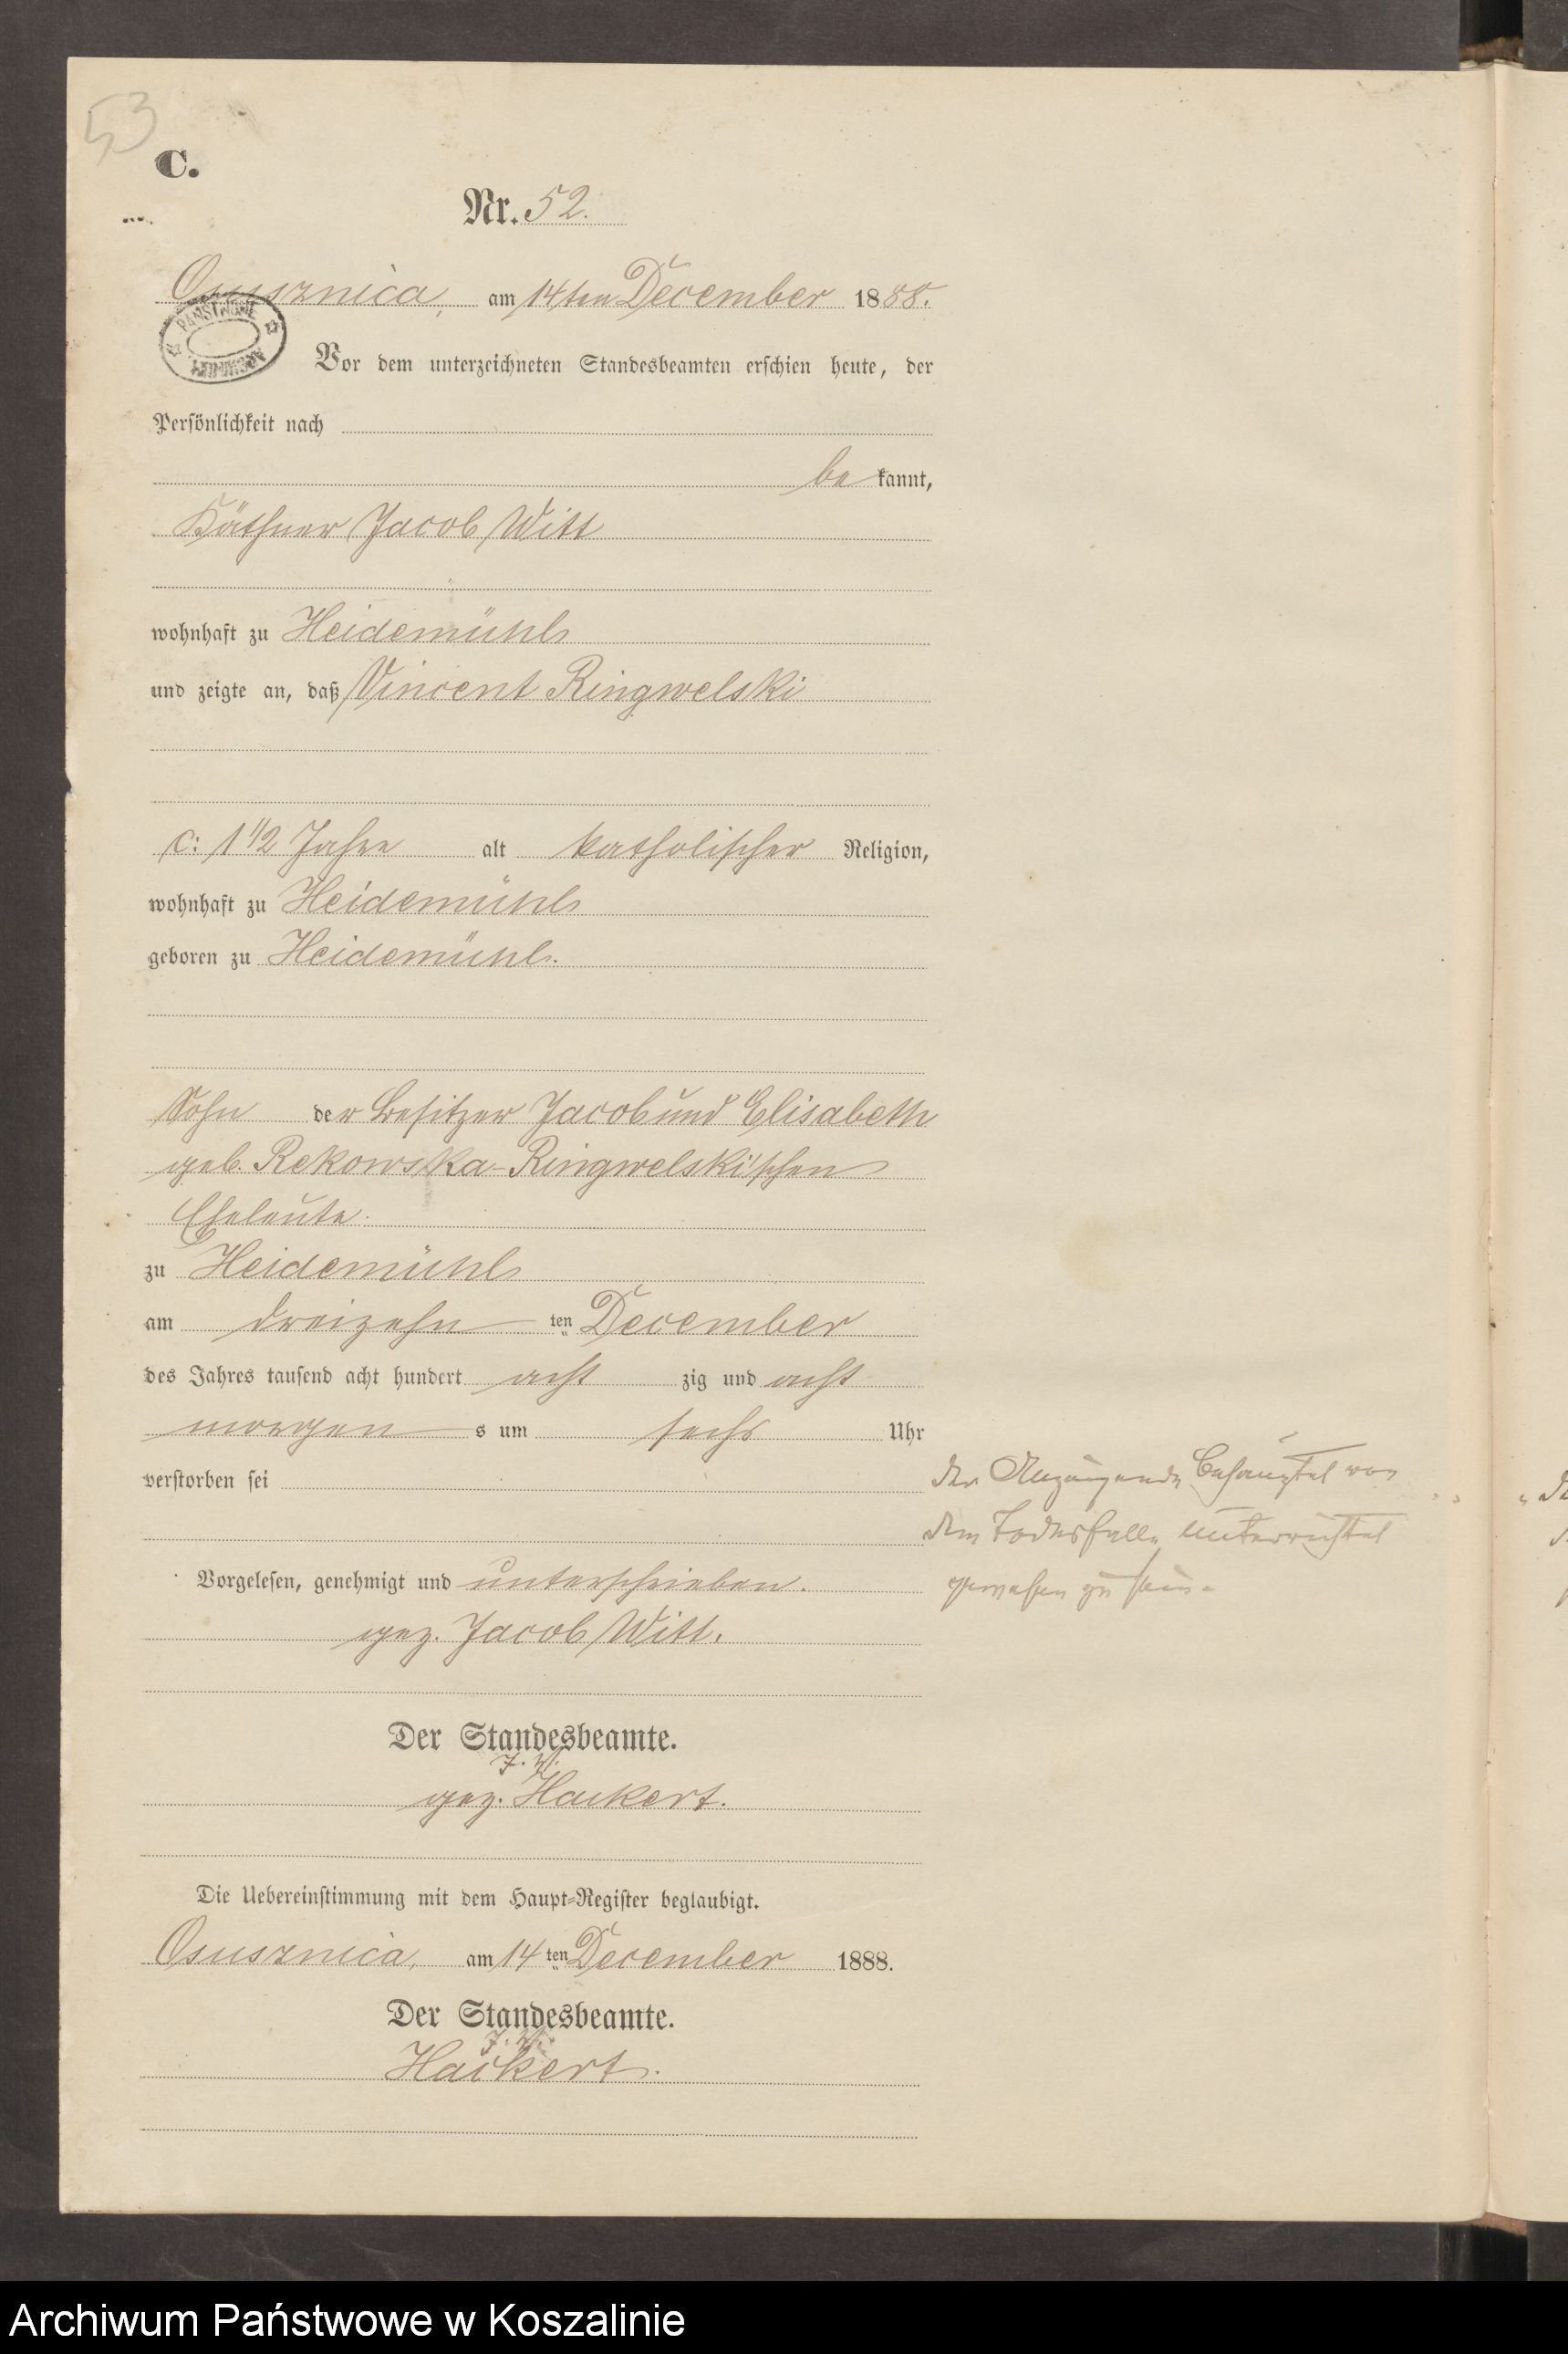 53
C.
Nr. 52.
Osusznica, am 14ten December 1888.
PAŃSTWOWE ARCHIWUM
Vor dem unterzeichneten Standesbeamten erschien heute, der
Persönlichkeit nach
be kannt,
Käthner Jacob Witt
wohnhaft zu Heidemühl
und zeigte an, daß Vincent Ringwelski
c: 1 1/2 Jahre alt katholischer Religion,
wohnhaft zu Heidemühl
geboren zu Heidemühl.
Sohn der Besitzer Jacob und Elisabeth
geb. Rekowska-Ringwelski'schen
Eheleute.
zu Heidemühl
am dreizehn ten December
des Jahres tausend acht hundert acht zig und acht
morgen s um sechs Uhr
verstorben sei
der Anzeigende behauptet von
dem Todesfalle unterrichtet
gewesen zu sein.
Vorgelesen, genehmigt und unterschrieben.
gez. Jacob Witt.
Der Standesbeamte.
J. V.
gez. Hackert.
Die Uebereinstimmung mit dem Haupt-Register beglaubigt.
Osusznica, am 14 ten December 1888.
Der Standesbeamte.
J. V.
Hackert.
Archiwum Państwowe w Koszalinie